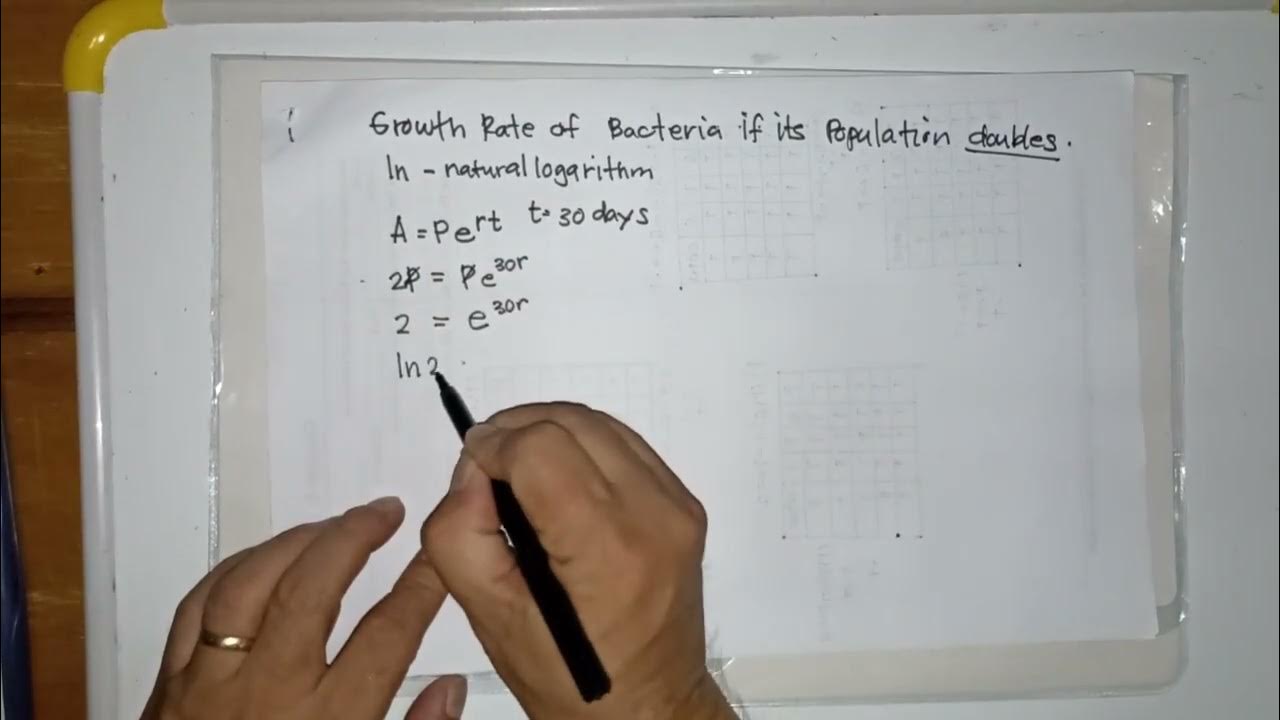 Growth Rate of Bacteria if its Population doubles.
ln - natural logarithm
A = Pe^rt t = 30 days
2P = Pe^30r
2 = e^30r
ln 2